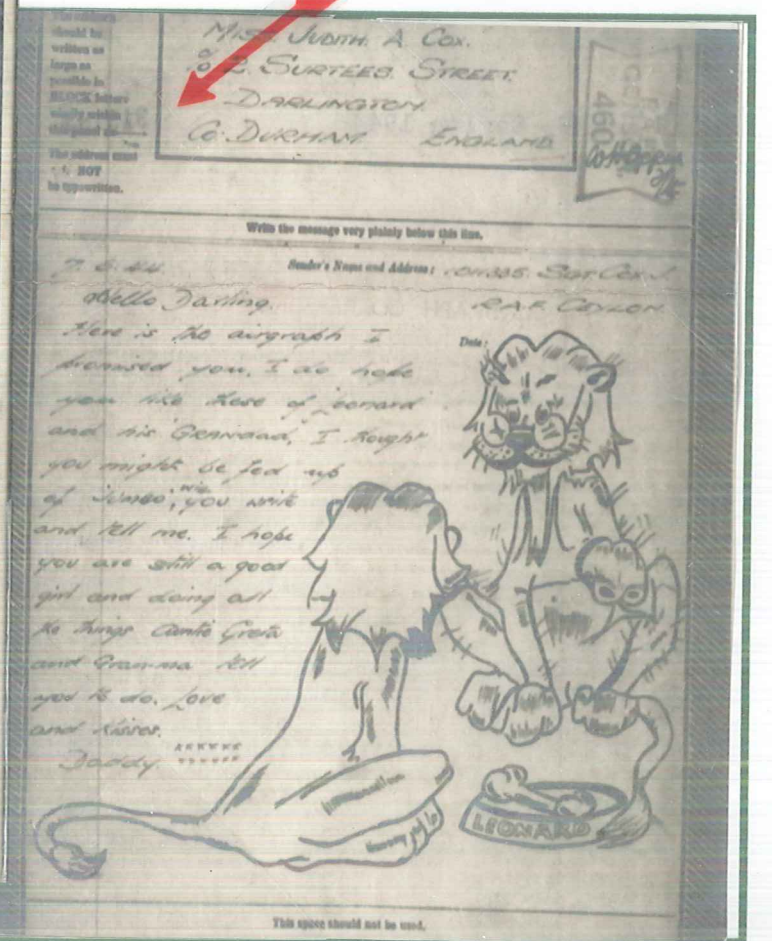 should be
written as
large as
possible in
BLOCK letters
The address must
NOT
be typewritten.
MISS. JUDITH. A COX.
% 2. SURTEES. STREET.
DARLINGTON.
CO. DURHAM ENGLAND
460
Write the message very plainly below this line.
Sender's Name and Address: SGT. COX. J.
R.A.F. CEYLON.
Date:
Hello Darling.
Here is the airgraph I
promised you, I do hope
you like these of Leonard
and his Grandad, I thought
you might be fed up
of Jumbo, will you write
and tell me. I hope
you are still a good
girl and doing all
the things Auntie Greta
and Gran-ma tell
you to do. Love
and Kisses.
Daddy. xxxxxx
xxxxxx
LEONARD
This space should not be used.